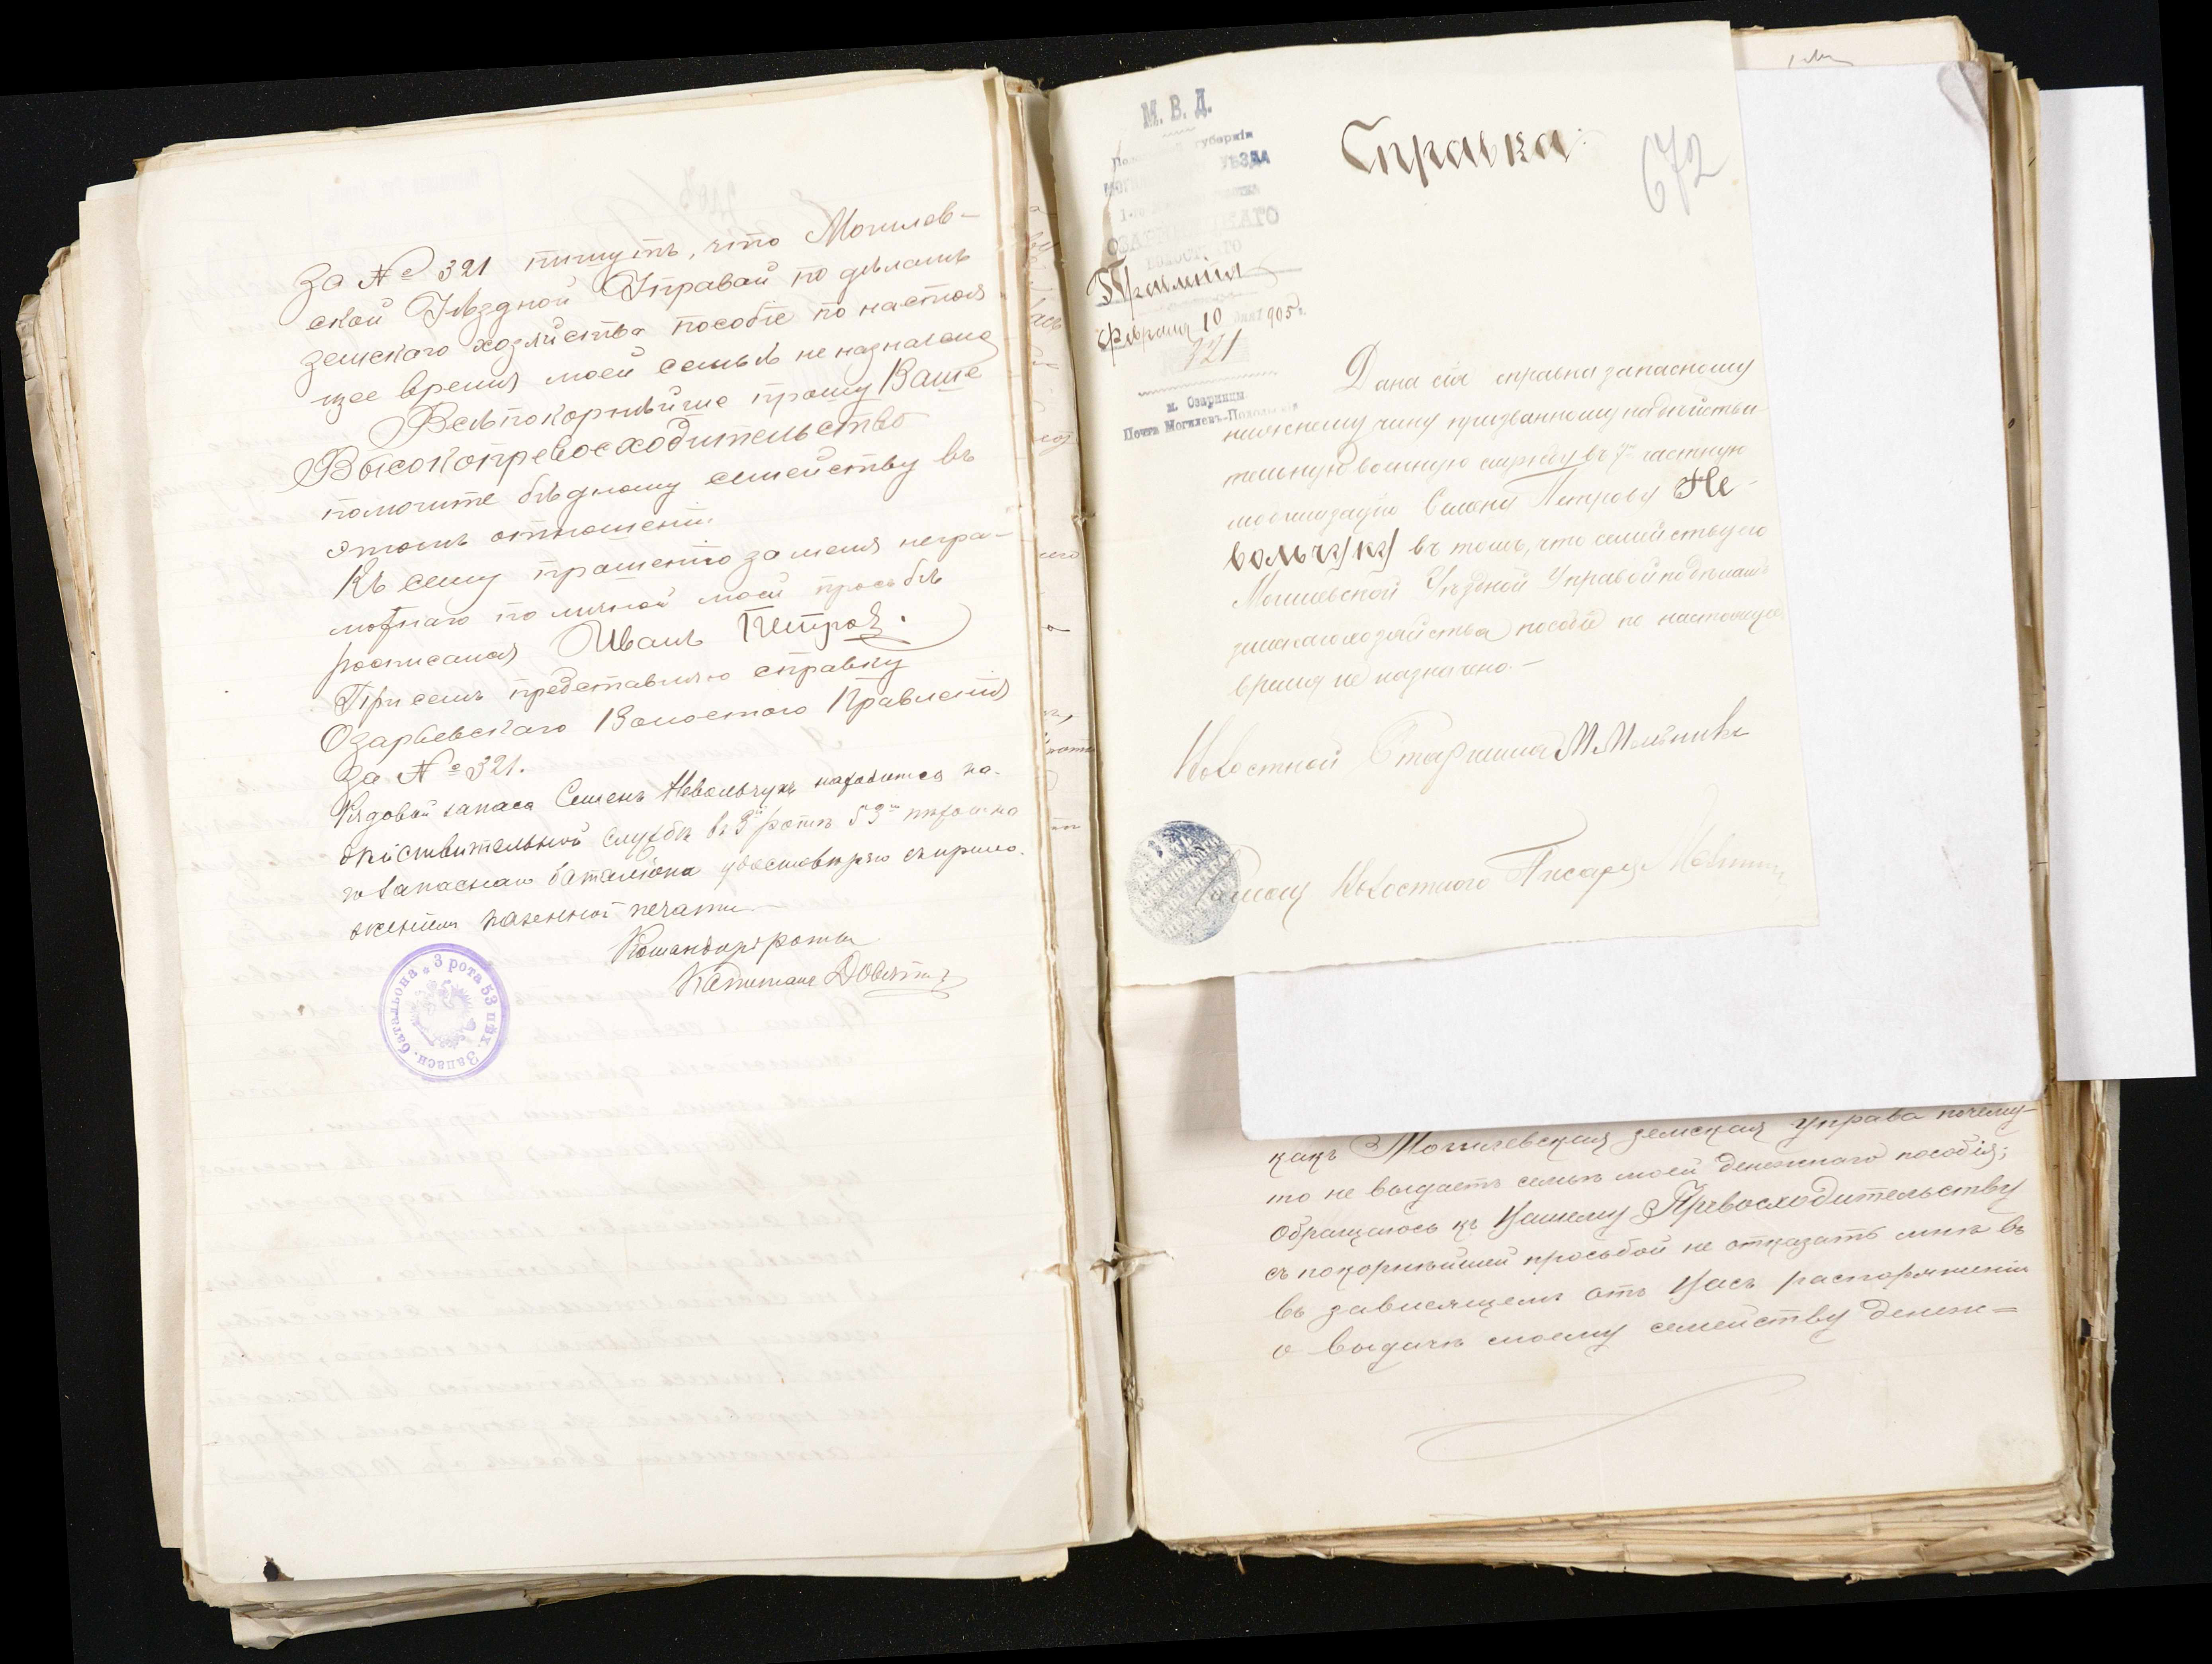 за № 321 пишутъ, что Могилев-
ской Уѣздной Управай по дѣламъ
земскаго хозяйства пособіе по настоя
щее время моей семьѣ не назначено
Всѣпокорнѣйше прошу Ваше
Высокопревосходительство
помогите бѣдному семейству въ
этомъ отношеніи
Къ сему прошенію за меня негра-
мотнаго по личной моей просьбѣ
росписался Иванъ Петров.
При семъ представляю справку
Озарьевскаго Волостого Правленія
За № 321.
Рядовой запаса Семенъ Невольчукъ находится на
дѣйствительной службѣ въ 3й ротѣ 53го пѣхотна
го запаснаго баталіона удостовѣряю съ прило-
женіем казенной печати.-
Командиръ роты
Капитанъ
3 рота 53 пѣх. Запасн. баталіона
М. В. Д.
губерніи
УѢЗДА
Правленія
Февраля 10 дня 1905 г.
321
м. Озаринцы
Почта Могилевъ-Подольскій
Справка.
672
Дана сія справка запасному
нижнему чину призванному на дѣйстви
тельную военную службу въ 7ю частную
мобилизацію Семену Петрову Не-
вольчуку въ томъ, что семейству его
Могилевской Уѣздной Управой по дѣламъ
земскаго хозяйства пособіе по настоящее
время не назначено.-
Волостной Старшина М Мельникъ
Волостного Писаря
какъ Могилевская земская управа почему-
то не выдаетъ семьѣ моей денежнаго пособія;
обращаюсь къ Вашему Превосходительству
съ покорнѣйшей просьбой не отказать мнѣ въ
въ зависящемъ отъ Васъ распоряженіи
о выдачѣ моему семейству денеж=